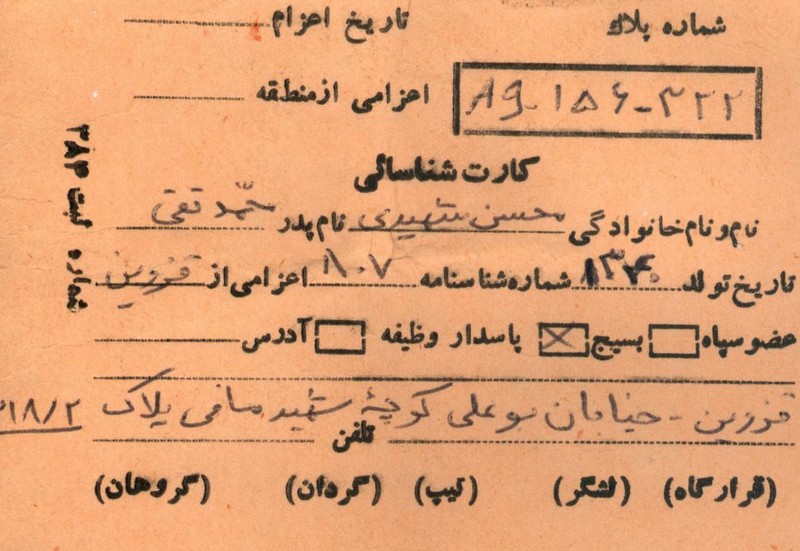 شماره پلاك تاریخ اعزام
۸۹-۱۵۶-۳۲۲ اعزامی از منطقه
کارت شناسائی
نام و نام خانوادگی محسن شهیدی نام پدر محمّد تقی
تاریخ تولد شماره شناسنامه ۸۰۷ اعزامی از قزوین
عضو سپاه بسیج پاسدار وظیفه آدرس
قزوین - خیابان بوعلی کوچهٔ شهید صافی پلاک ۱۸/۲
تلفن
(قرارگاه) (لشگر) (تیپ) (گردان) (گروهان)
شماره ثبت ۳۸۴